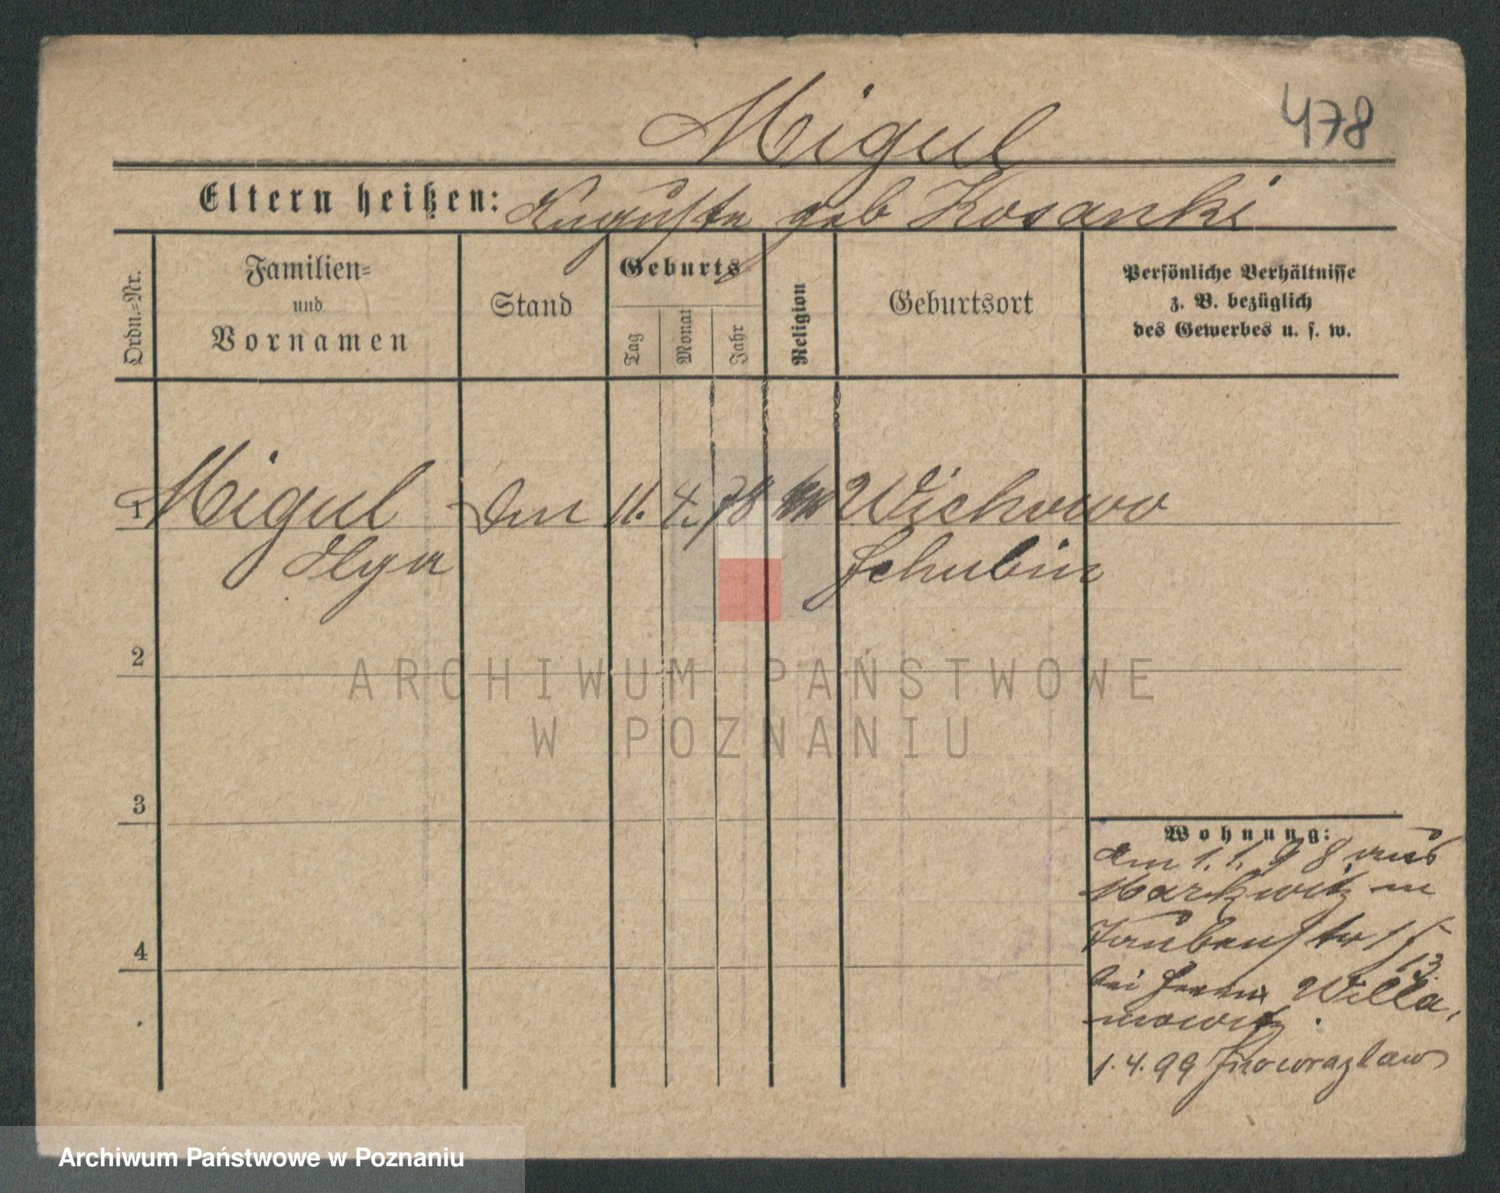 Migul
478
Eltern heißen: Auguste geb Kosanki
Ordn.-Nr.
Familien-
und
Vornamen
Stand
Geburts
Tag
Monat
Jahr
Religion
Geburtsort
Persönliche Verhältnisse
z. B. bezüglich
des Gewerbes u. s. w.
1 Migul 11. 4. 78 Wichowo
Olga Schubin
2
3
4
Wohnung:
am 1.1.98 aus
Markwitz in
Taubenstr 15
13.
bei Herrn Willa-
mowitz.
1.4.99 Inowrazlaw
ARCHIWUM PAŃSTWOWE
W POZNANIU
Archiwum Państwowe w Poznaniu